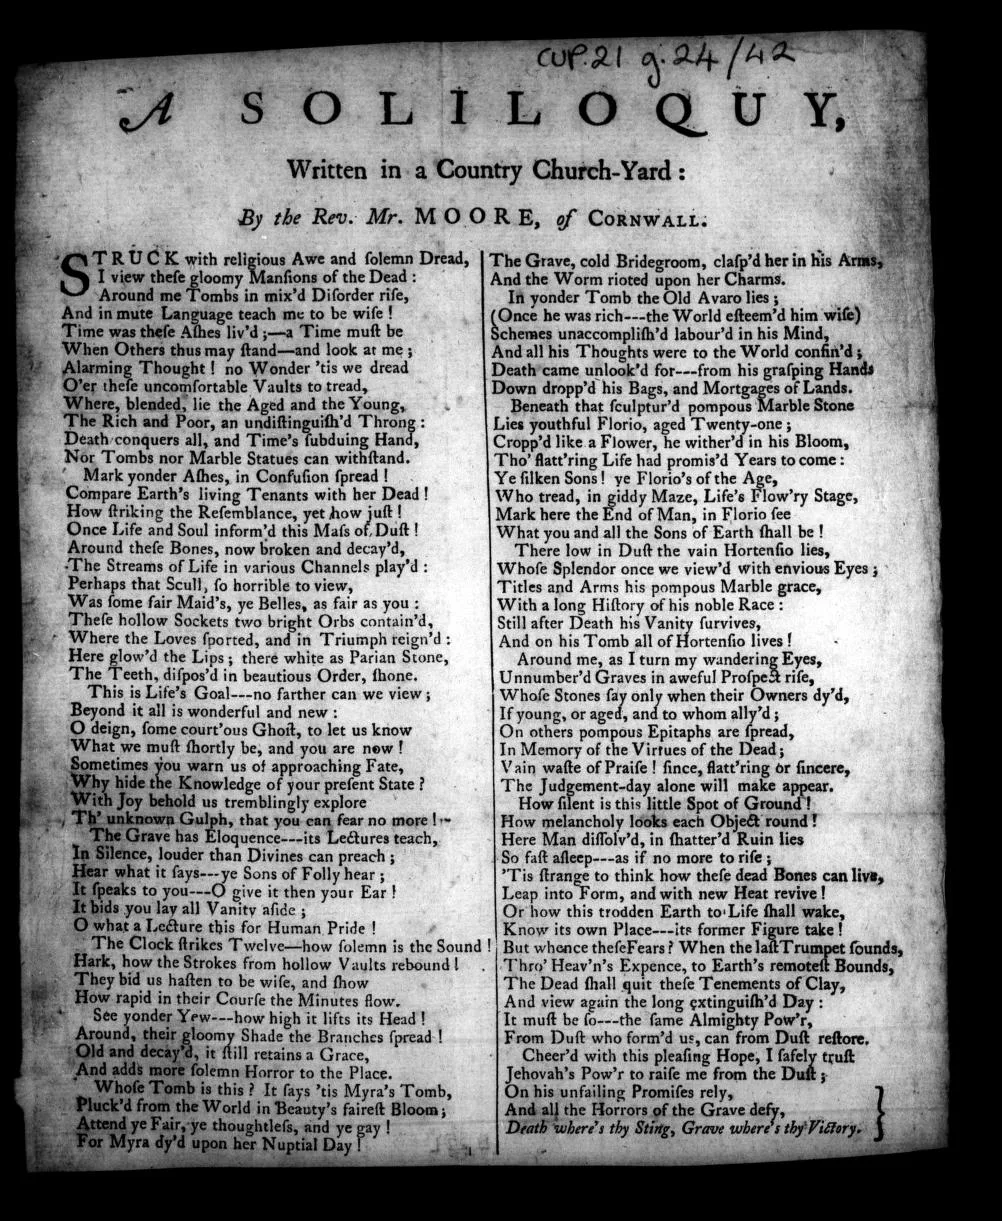 CUP.21 g.24/42
A SOLILOQUY,
Written in a Country Church-Yard :
By the Rev. Mr. MOORE, of CORNWALL.
STRUCK with religious Awe and ſolemn Dread,
I view theſe gloomy Manſions of the Dead :
Around me Tombs in mix'd Diſorder riſe,
And in mute Language teach me to be wiſe !
Time was theſe Aſhes liv'd ;—a Time muſt be
When Others thus may ſtand—and look at me ;
Alarming Thought ! no Wonder 'tis we dread
O'er theſe uncomfortable Vaults to tread,
Where, blended, lie the Aged and the Young,
The Rich and Poor, an undiſtinguiſh'd Throng :
Death conquers all, and Time's ſubduing Hand,
Nor Tombs nor Marble Statues can withſtand.
Mark yonder Aſhes, in Confuſion ſpread !
Compare Earth's living Tenants with her Dead !
How ſtriking the Reſemblance, yet how juſt !
Once Life and Soul inform'd this Maſs of Duſt !
Around theſe Bones, now broken and decay'd,
The Streams of Life in various Channels play'd :
Perhaps that Scull, ſo horrible to view,
Was ſome fair Maid's, ye Belles, as fair as you :
Theſe hollow Sockets two bright Orbs contain'd,
Where the Loves ſported, and in Triumph reign'd :
Here glow'd the Lips ; there white as Parian Stone,
The Teeth, diſpos'd in beautious Order, ſhone.
This is Life's Goal---no farther can we view ;
Beyond it all is wonderful and new :
O deign, ſome court'ous Ghoſt, to let us know
What we muſt ſhortly be, and you are now !
Sometimes you warn us of approaching Fate,
Why hide the Knowledge of your preſent State ?
With Joy behold us tremblingly explore
Th' unknown Gulph, that you can fear no more !
The Grave has Eloquence---its Lectures teach,
In Silence, louder than Divines can preach ;
Hear what it ſays---ye Sons of Folly hear ;
It ſpeaks to you---O give it then your Ear !
It bids you lay all Vanity aſide ;
O what a Lecture this for Human Pride !
The Clock ſtrikes Twelve—how ſolemn is the Sound !
Hark, how the Strokes from hollow Vaults rebound !
They bid us haſten to be wiſe, and ſhow
How rapid in their Courſe the Minutes flow.
See yonder Yew---how high it lifts its Head !
Around, their gloomy Shade the Branches ſpread !
Old and decay'd, it ſtill retains a Grace,
And adds more ſolemn Horror to the Place.
Whoſe Tomb is this ? It ſays 'tis Myra's Tomb,
Pluck'd from the World in Beauty's faireſt Bloom ;
Attend ye Fair, ye thoughtleſs, and ye gay !
For Myra dy'd upon her Nuptial Day !
The Grave, cold Bridegroom, claſp'd her in his Arms,
And the Worm rioted upon her Charms.
In yonder Tomb the Old Avaro lies ;
(Once he was rich---the World eſteem'd him wiſe)
Schemes unaccompliſh'd labour'd in his Mind,
And all his Thoughts were to the World confin'd ;
Death came unlook'd for---from his graſping Hands
Down dropp'd his Bags, and Mortgages of Lands.
Beneath that ſculptur'd pompous Marble Stone
Lies youthful Florio, aged Twenty-one ;
Cropp'd like a Flower, he wither'd in his Bloom,
Tho' flatt'ring Life had promis'd Years to come :
Ye ſilken Sons ! ye Florio's of the Age,
Who tread, in giddy Maze, Life's Flow'ry Stage,
Mark here the End of Man, in Florio ſee
What you and all the Sons of Earth ſhall be !
There low in Duſt the vain Hortenſio lies,
Whoſe Splendor once we view'd with envious Eyes ;
Titles and Arms his pompous Marble grace,
With a long Hiſtory of his noble Race :
Still after Death his Vanity ſurvives,
And on his Tomb all of Hortenſio lives !
Around me, as I turn my wandering Eyes,
Unnumber'd Graves in aweful Proſpect riſe,
Whoſe Stones ſay only when their Owners dy'd,
If young, or aged, and to whom ally'd ;
On others pompous Epitaphs are ſpread,
In Memory of the Virtues of the Dead ;
Vain waſte of Praiſe ! ſince, flatt'ring or ſincere,
The Judgement-day alone will make appear.
How ſilent is this little Spot of Ground !
How melancholy looks each Object round !
Here Man diſſolv'd, in ſhatter'd Ruin lies
So faſt aſleep---as if no more to riſe ;
'Tis ſtrange to think how theſe dead Bones can live,
Leap into Form, and with new Heat revive !
Or how this trodden Earth to Life ſhall wake,
Know its own Place---its former Figure take !
But whence theſe Fears ? When the laſt Trumpet ſounds,
Thro' Heav'n's Expence, to Earth's remoteſt Bounds,
The Dead ſhall quit theſe Tenements of Clay,
And view again the long extinguiſh'd Day :
It muſt be ſo---the ſame Almighty Pow'r,
From Duſt who form'd us, can from Duſt reſtore.
Cheer'd with this pleaſing Hope, I ſafely truſt
Jehovah's Pow'r to raiſe me from the Duſt ;
On his unfailing Promiſes rely,
And all the Horrors of the Grave defy,
Death where's thy Sting, Grave where's thy Victory.